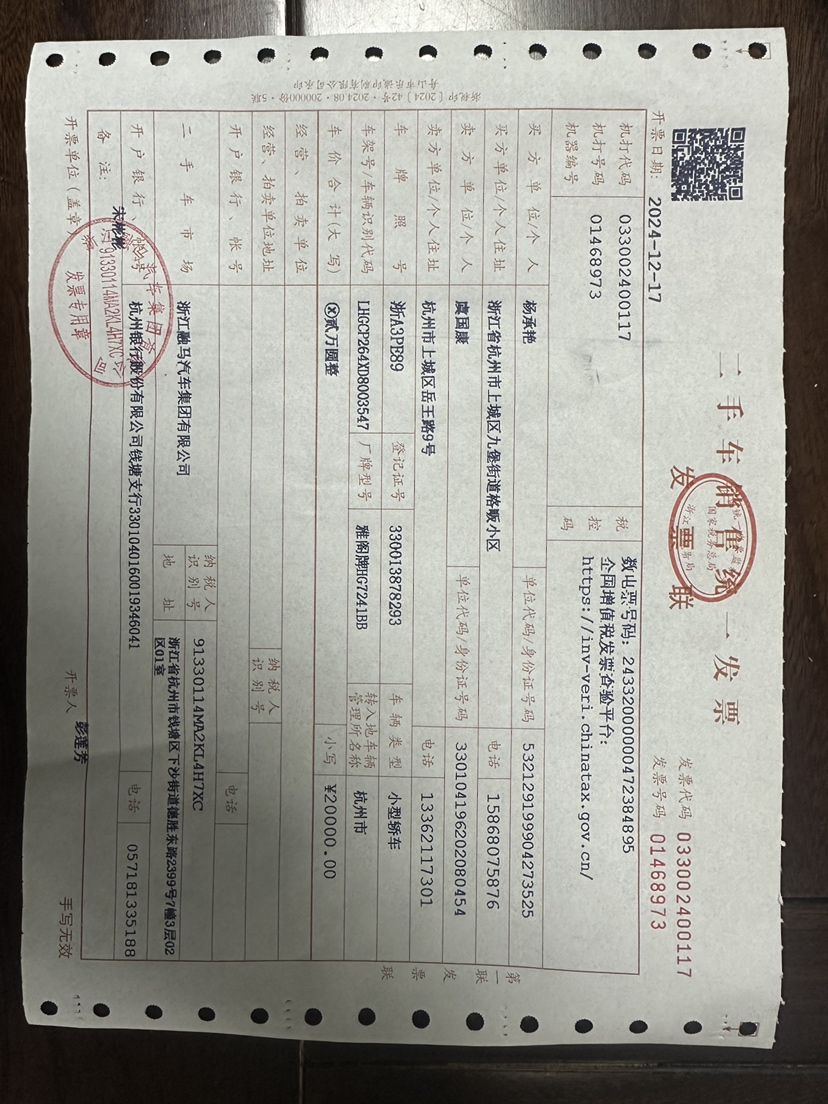 浙税印[2024]42号·2024.08·200000份·5联
舟山市乐诚印刷有限公司承印
二手车销售统一发票
发票联
发票代码 033002400117
发票号码 01468973
开票日期: 2024-12-17
机打代码 033002400117
机打号码 01468973
机器编号
税控码
数电票号码: 24332000000472384895
全国增值税发票查验平台:
https://inv-veri.chinatax.gov.cn/
买方单位/个人 杨承艳 单位代码/身份证号码 532129199904273525
买方单位/个人住址 浙江省杭州市上城区九堡街道格畈小区 电话 15868075876
卖方单位/个人 虞国康 单位代码/身份证号码 330104196202080454
卖方单位/个人住址 杭州市上城区岳王路9号 电话 13362117301
车牌照号 浙A3PE89 登记证号 330013878293 车辆类型 小型轿车
车架号/车辆识别代码 LHGCP264XD8003547 厂牌型号 雅阁牌HG7241BB 转入地车辆管理所名称 杭州市
车价合计(大写) ⓧ贰万圆整 小写 ¥20000.00
经营、拍卖单位
经营、拍卖单位地址 纳税人识别号
开户银行、帐号 电话
二手车市场 浙江融马汽车集团有限公司 纳税人识别号 91330114MA2KL4H7XC
地址 浙江省杭州市钱塘区下沙街道德胜东路2399号7幢3层02区01室
开户银行、帐号 杭州银行股份有限公司钱塘支行3301040160019346041 电话 057181335188
备注: 宋彬彬
开票单位(盖章) 开票人 彭莲芳 手写无效
第一联 发票联
国家税务总局
91330114MA2KL4H7XC
发票专用章